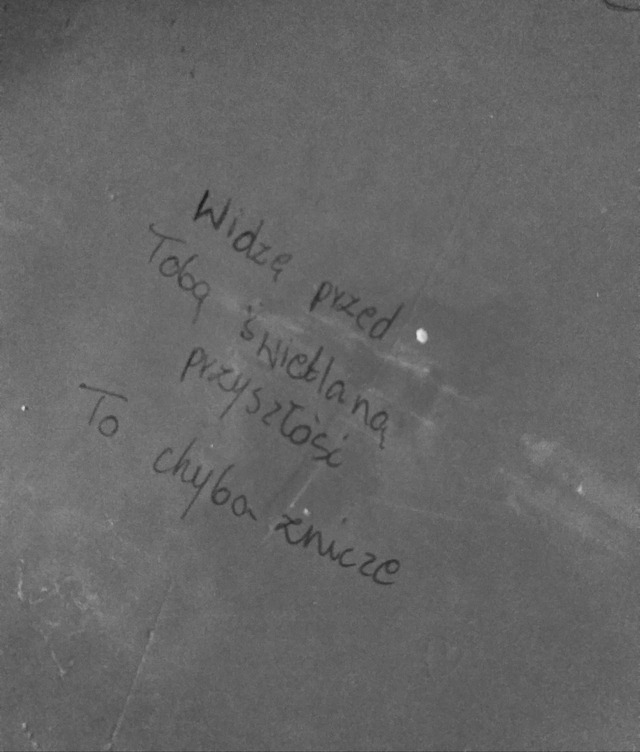 Widzę przed
Tobą świetlaną
przyszłość
To chyba znicze